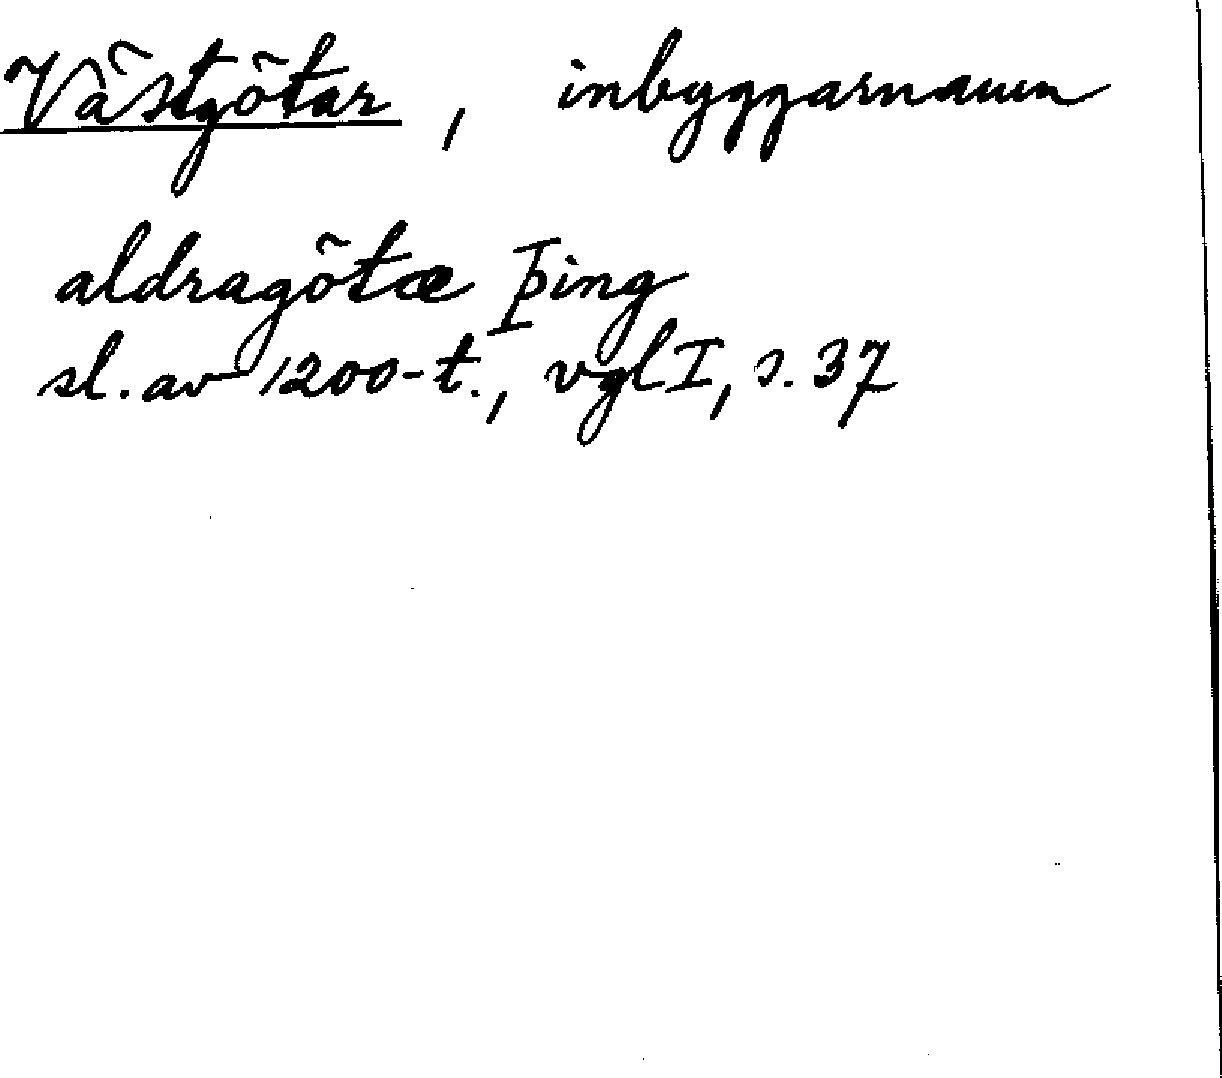 Västgötar, inbyggarnamn
aldragötæ þing
sl. av 1200-t., vgl I, s. 37